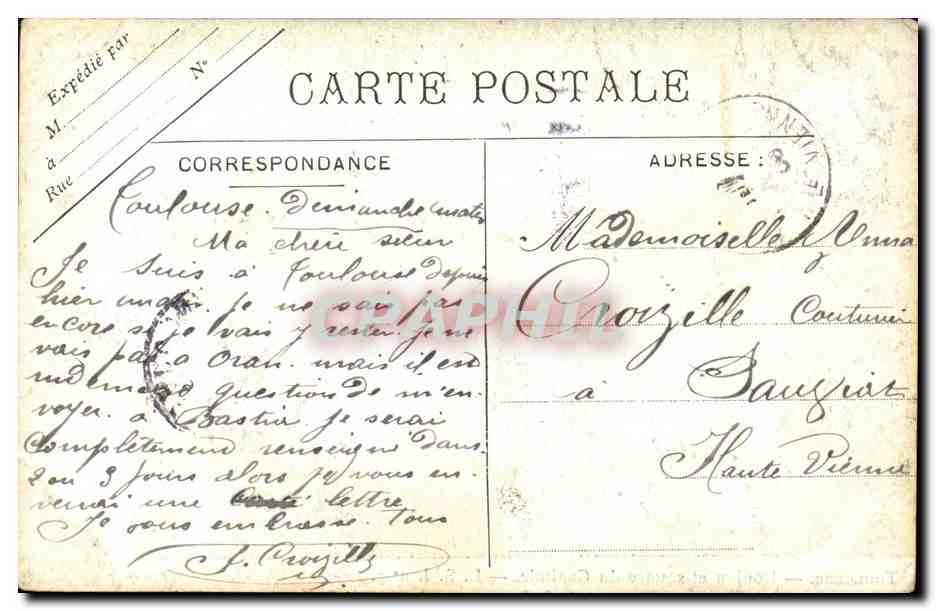 Expédié par
M.
à
Rue
N°
CARTE POSTALE
CORRESPONDANCE
ADRESSE :
Toulouse. Dimanche matin
Ma chère sœur
Je suis à Toulouse depuis
hier matin je ne sais pas
encore si je vais y rester je ne
vais pas à Oran. mais il est
question de m'en-
voyer. à Bastia je serai
complètement renseigné dans
2 ou 3 jours alors je vous en-
verrai une carte lettre
Je vous embrasse. tous
J. Croizille
Mademoiselle Anna
Croizille Couturier
à Sauviat
Haute Vienne